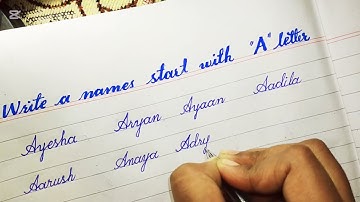 Write a names start with "A" letter
Ayesha Aryan Ayaan Aadila
Aarush Anaya Adry